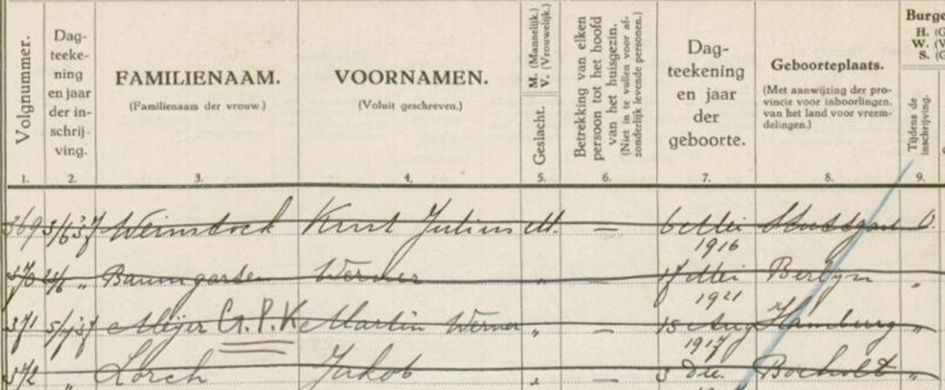 Volgnummer.
Dag-
teeke-
ning
en jaar
der in-
schrij-
ving.
FAMILIENAAM.
(Familienaam der vrouw.)
VOORNAMEN.
(Voluit geschreven.)
M. (Mannelijk.)
V. (Vrouwelijk.)
Geslacht.
Betrekking van elken
persoon tot het hoofd
van het huisgezin.
(Niet in te vullen voor af-
zonderlijk levende personen.)
Dag-
teekening
en jaar
der
geboorte.
Geboorteplaats.
(Met aanwijzing der pro-
vincie voor inboorlingen.
van het land voor vreem-
delingen.)
Burge
H. (G
W. (V
S. (G
Tijdens de
inschrijving.
1. 2. 3. 4. 5. 6. 7. 8. 9.
369 5/6 37 Weinstock Kurt Julius M. — 6 Mei Stuttgart O.
1916
370 „ Baumgarten Werner „ 17 Mei Berlijn „
1921
371 Meijer G.P.K Martin Werner „ — 15 Aug Hamburg „
1917
372 „ Lorch Jakob „ — 3 Dec. Bocholt „